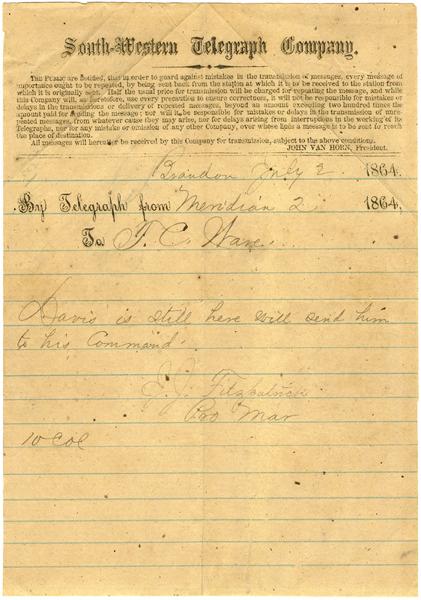 South-Western Telegraph Company.
THE PUBLIC are notified, that in order to guard against mistakes in the transmission of messages, every message of
importance ought to be repeated, by being sent back from the station at which it is to be received to the station from
which it is originally sent. Half the usual price for transmission will be charged for repeating the message, and while
this Company will, as heretofore, use every precaution to ensure correctness, it will not be responsible for mistakes or
delays in the transmissions or delivery of repeated messages, beyond an amount exceeding two hundred times the
amount paid for sending the message; nor will it be responsible for mistakes or delays in the transmission of unre-
peated messages, from whatever cause they may arise, nor for delays arising from interruptions in the working of its
Telegraphs, nor for any mistake or omission of any other Company, over whose lines a message is to be sent to reach
the place of destination.
All messages will hereafter be received by this Company for transmission, subject to the above conditions.
JOHN VAN HORN, President.
Brandon July 2 1864.
By Telegraph from Meridian 2 1864.
To T. C. Ware
Davis is still here will send him
to his Command.
J. J.
Pro Mar
10 Col